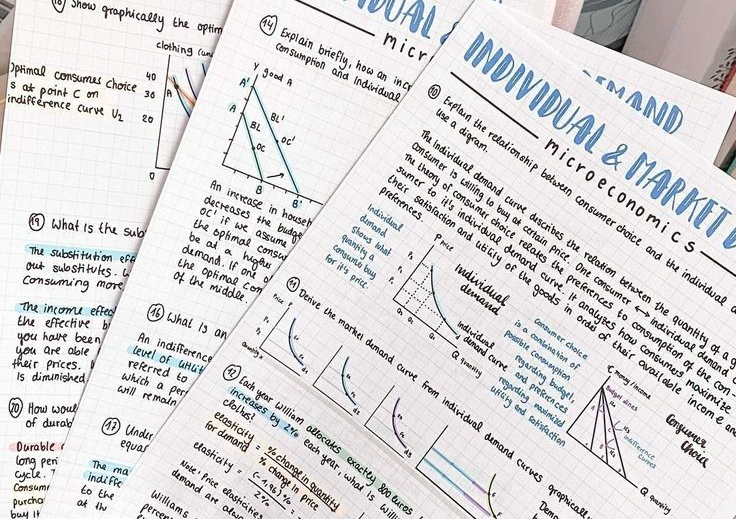 Show graphically the optim
clothing (un
Optimal consumes choice
is at point C on
indifference curve U2
40
36
20
A
0
19 What is the sub
The substitution eff
out substitutes.
consuming more
The income effec
the effective b
you have been
you are able
their prices.
is diminished
20 How woul
of durab
Durable
long peri
cycle.
Consum
purcha
buy it
INDIVIDUAL &
micr
14 Explain briefly, how an incr
consumption and individual
y good A
A'
A
BL'
BL
OC'
OC
B
B'
An increase in househ
decreases the budge
OC; if we assume
the optimal consu
be at a higher
demand. If one o
the optimal con
of the middle.
16 What is an
An indifference
level of utility
referred to
which a per
will remain
17 Under
equas
The ma
indiffe
to the
at th
DEMAND
INDIVIDUAL & MARKET D
microeconomics
10 Explain the relationship between consumer choice and the individual d
Use a digram.
The individual demand curve describes the relation between the quantity of a g
consumer is willing to buy at certain price. One consumer ↔ Individual demand c
The theory of consumer choice relates the preferences to consumption of the con-
sumer to it's individual demand curve. It analyzes how consumers maximize
their satisfaction and utility of the goods in order of their available income and
preferences.
Individual
demand
shows what
quantity a
consumer buy
for it's price.
P price
Individual
demand
Individual
demand curve
Q quantity
Consumer choice
is a combination of
possible consumption
regarding budget
and preferences
regarding maximized
utility and satisfaction
C money/income
Budget lines
Indifference
curves
Q quantity
Consumer
choice
11 Derive the market demand curve from individual demand curves graphically
Price P
quantity Q
12 Each year William allocates exactly 800 euros
increases by 2% each year, what is Willia
clothes?
elasticity = % change in quantity
for demand % change in price
elasticity =
2%
Note: Price elasticities
demand are alwa
Williams
percen
Dem